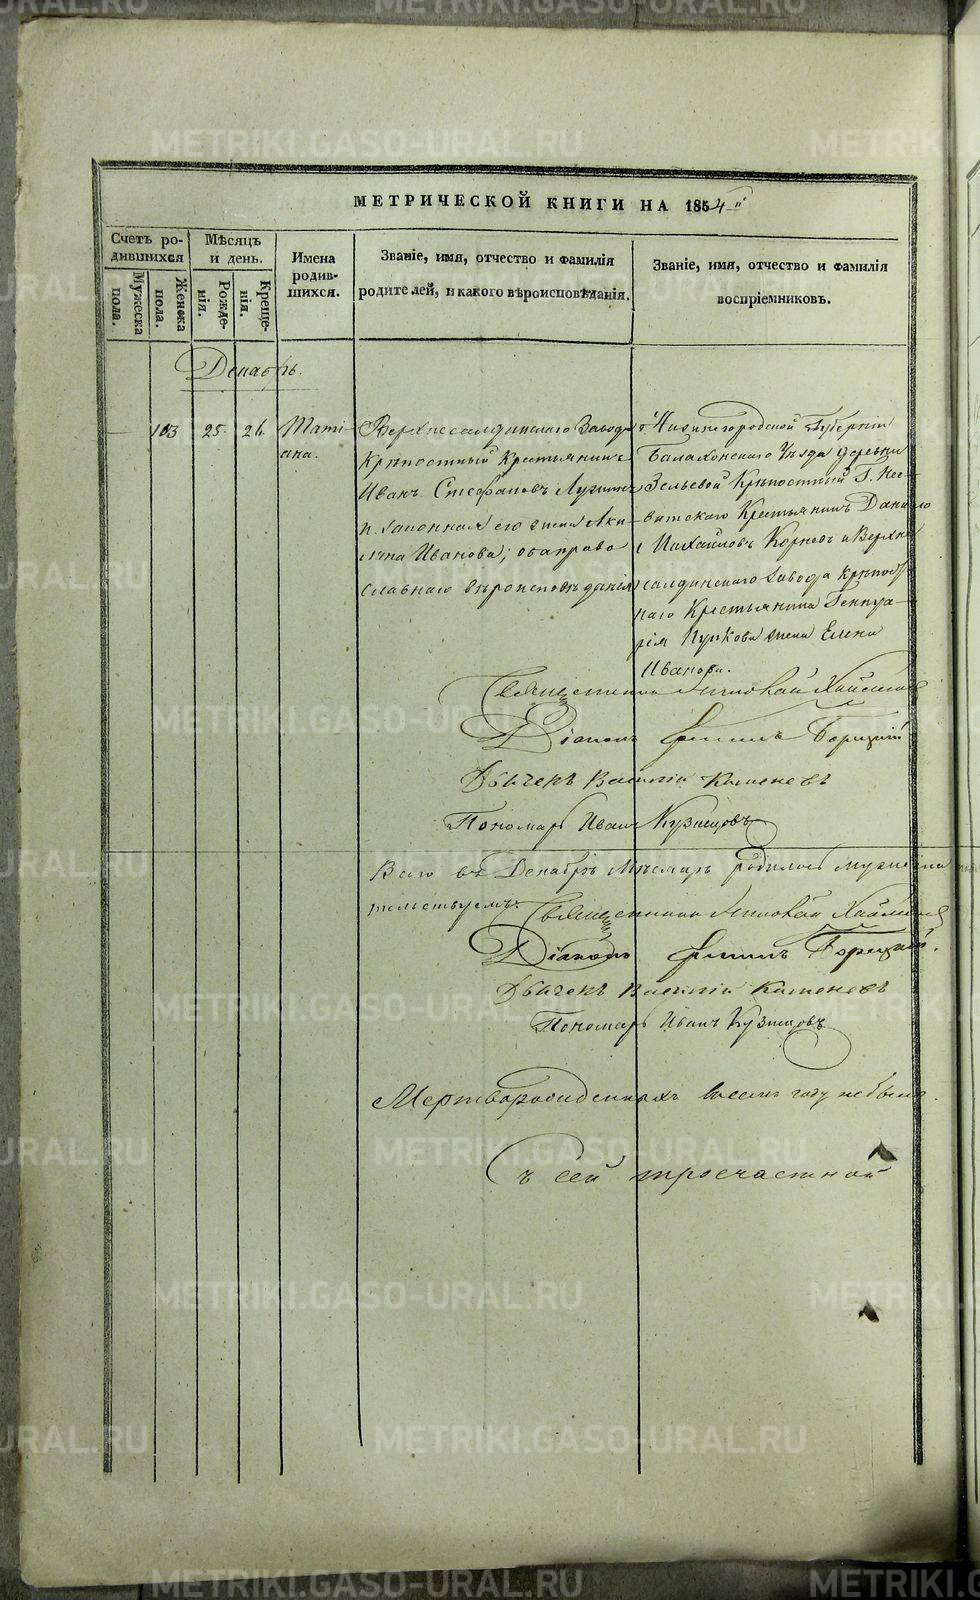 МЕТРИЧЕСКОЙ КНИГИ НА 1854
Счетъ ро-
дившихся
Мужеска
пола.
Женска
пола.
Мѣсяцъ
и день.
Рожде-
нія.
Креще-
нія.
Имена
родив-
шихся.
Званіе, имя, отчество и фамилія
родителей, и какого вѣроисповѣданія.
Званіе, имя, отчество и фамилія
воспріемниковъ.
Декабрь.
103
25.
26.
Тати-
ана.
Верхнесалдинскаго Завода
Крѣпостный Крестьянинъ
Иванъ Стефановъ
и законная его жена Аки-
лина Иванова; оба право
славнаго вѣроисповѣданія
Нижнегородской Губерніи
Балахонскаго Уѣзда деревни
Крѣпостный Г.
Крестьянинъ Данило
Михайловъ Корневъ и Верхне
салдинскаго Завода крѣпост
наго Крестьянина Геннуа-
рія Пункова жена Елена
Иванова.
Священникъ
Діаконъ Филипъ Борецкій
Дьячекъ Василій Каменевъ
Пономарь Иванъ Кузнецовъ
Всего въ Декабрѣ Мѣсяцѣ родилось мужеска
тельствуемъ:
Священникъ
Діаконъ Филипъ Борецкій.
Дьячекъ Василій Каменевъ
Пономарь Иванъ Кузнецовъ
Мертворожденныхъ въ семъ году не было.
Въ сей троечастной
METRIKI.GASO-URAL.RU